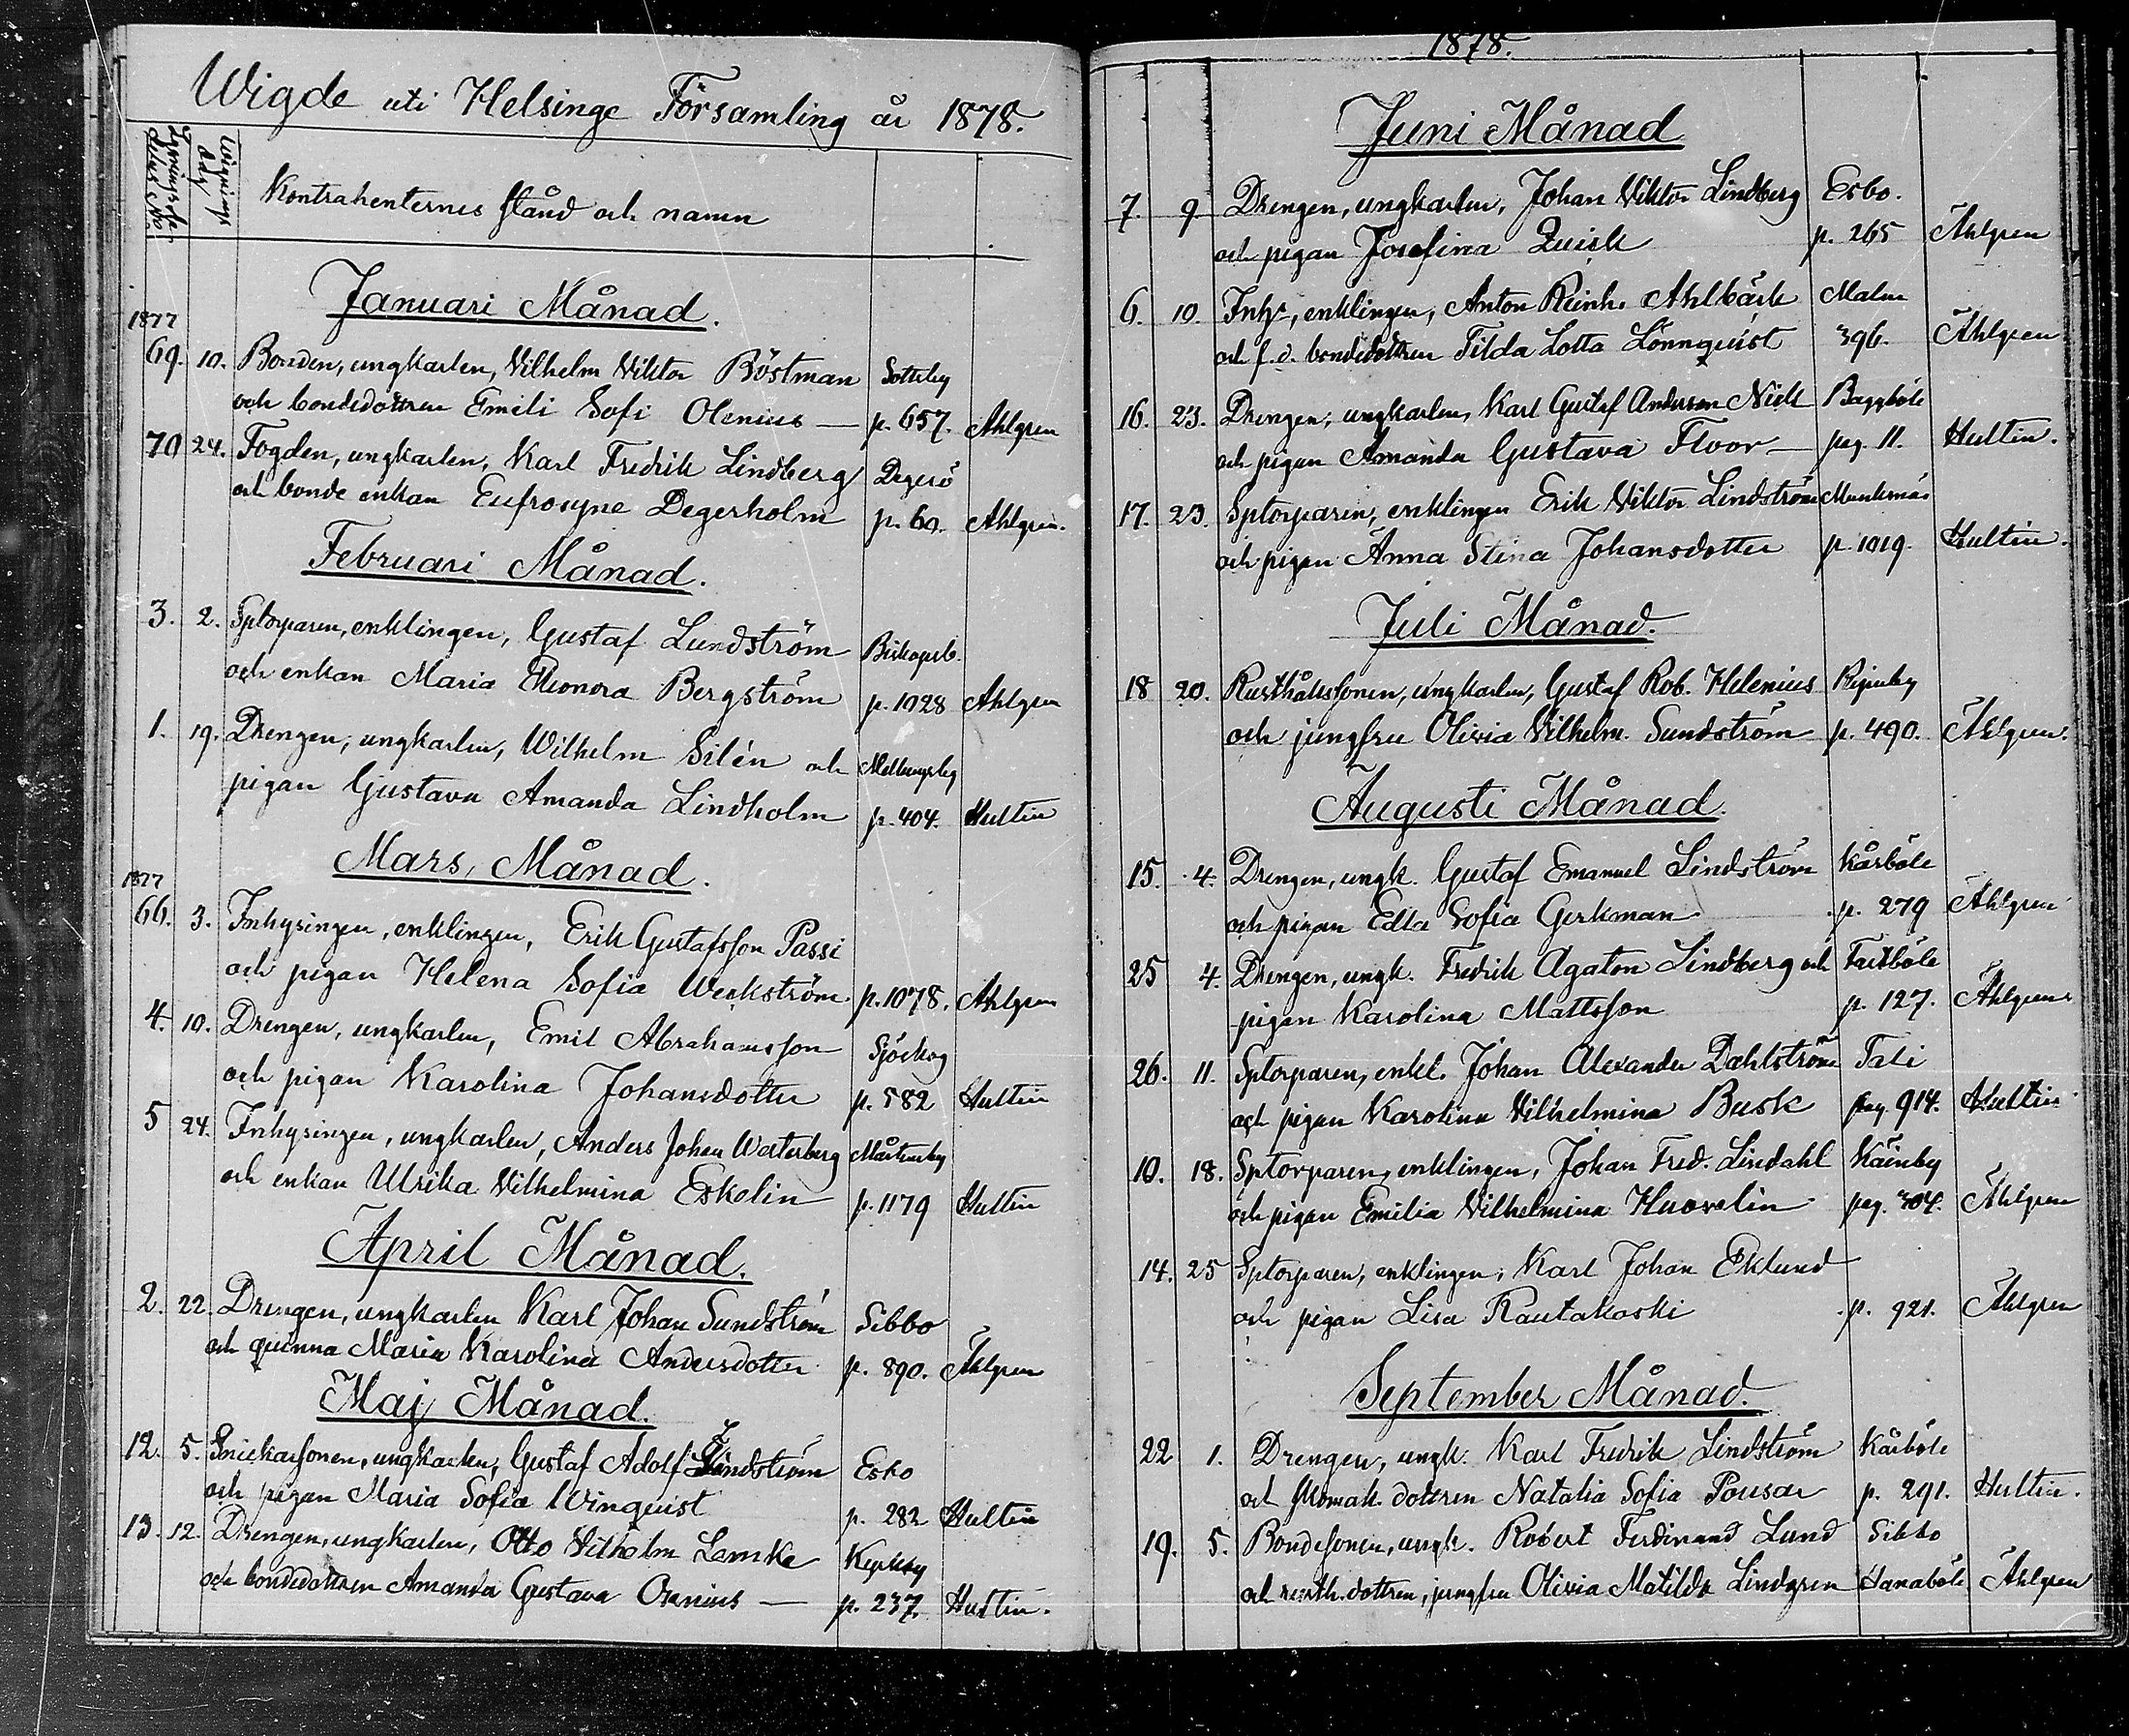 Wigde uti Helsinge Församling år 1878.
Lysnings
Wignings dag
Kontrahenternes stånd och namn
Januari Månad.
1877
69. 10. Bonden, ungkarlen, Vilhelm Viktor Böstman Sottsby
och bondedottren Emili Sofi Olenius — p. 657. Ahlgren
70 24. Fogden, ungkarlen, Karl Fredrik Lindberg Degerö
och bonde enkan Eufrosyne Degerholm p. 60. Ahlgren.
Februari Månad.
3. 2. Sptorparen, enklingen, Gustaf Lundström Biskopsb.
och enkan Maria Eleonora Bergström p. 1028 Ahlgren
1. 19. Drengen, ungkarlen, Wilhelm Silén och Mellungsby
pigan Gustava Amanda Lindholm p. 404. Hultin
Mars, Månad.
1877
66. 3. Inhysingen, enklingen, Erik Gustafsson Passi
och pigan Helena Sofia Weckström. p. 1078. Ahlgren
4. 10. Drengen, ungkarlen, Emil Abrahamsson Sjöskog
och pigan Karolina Johansdotter p. 582 Hultin
5 24. Inhysingen, ungkarlen, Anders Johan Westerberg Mårtensby
och enkan Ulrika Vilhelmina Eskolin p. 1179 Hultin
April Månad.
2. 22. Drengen, ungkarlen Karl Johan Sundström Sibbo
och qvinna Maria Karolina Andersdotter p. 890. Ahlgren
Maj Månad.
12. 5. Snickarsonen, ungkarlen, Gustaf Adolf Lindström Esbo
och pigan Maria Sofia Winquist p. 282 Hultin
13. 12. Drengen, ungkarlen, Otto Vilhelm Lemke Kyrkoby
och bondedottren Amanda Gustava Ornius — p. 237. Hultin.
1878.
Juni Månad
7. 9 Drengen, ungkarlen, Johan Viktor Lindberg Esbo.
och pigan Josefina Quick p. 265 Ahlgren
6. 10. Inhs, enklingen, Anton Reinh. Ahlbäck Malm
och f.d. bondedottren Tilda Lotta Lönnquist 396. Ahlgren
16. 23. Drengen, ungkarlen, Karl Gustaf Andersson Nick Baggböle
och pigan Amanda Gustava Floor — pag. 11. Hultin.
17. 23. Sptorparen, enklingen Erik Viktor Lindström Munksnäs
och pigan Anna Stina Johansdotter p. 1019. Hultin.
Juli Månad.
18 20. Rusthållssonen, ungkarlen, Gustaf Rob. Helenius
och jungfru Olivia Vilhelm. Sundström p. 490. Ahlgren.
Augusti Månad.
15. 4. Drengen, ungk. Gustaf Emanuel Lindström Kårböle
och pigan Edla Sofia Gerkman p. 279 Ahlgren
25 4. Drengen, ungk. Fredrik Agaton Lindberg och Fastböle
pigan Karolina Mattsson p. 127. Ahlgren
26. 11. Sptorparen, enkl. Johan Alexander Dahlström Tali
och pigan Karolina Vilhelmina Busk pag. 914. Hultin
10. 18. Sptorparen, enklingen, Johan Fred. Lindahl Käinby
och pigan Emilia Vilhelmina Huovelin pag. 304. Ahlgren
14. 25 Sptorparen, enklingen, Karl Johan Eklund
och pigan Lisa Rautakoski p. 921. Ahlgren
September Månad.
22 1. Drengen, ungk. Karl Fredrik Lindström Kårböle
och skomak. dottren Natalia Sofia Pousar p. 291. Hultin.
19. 5. Bondesonen, ungk. Robert Ferdinand Lund Sibbo
och rusth. dottren, jungfru Olivia Matilda Lindgren Hanaböle Ahlgren